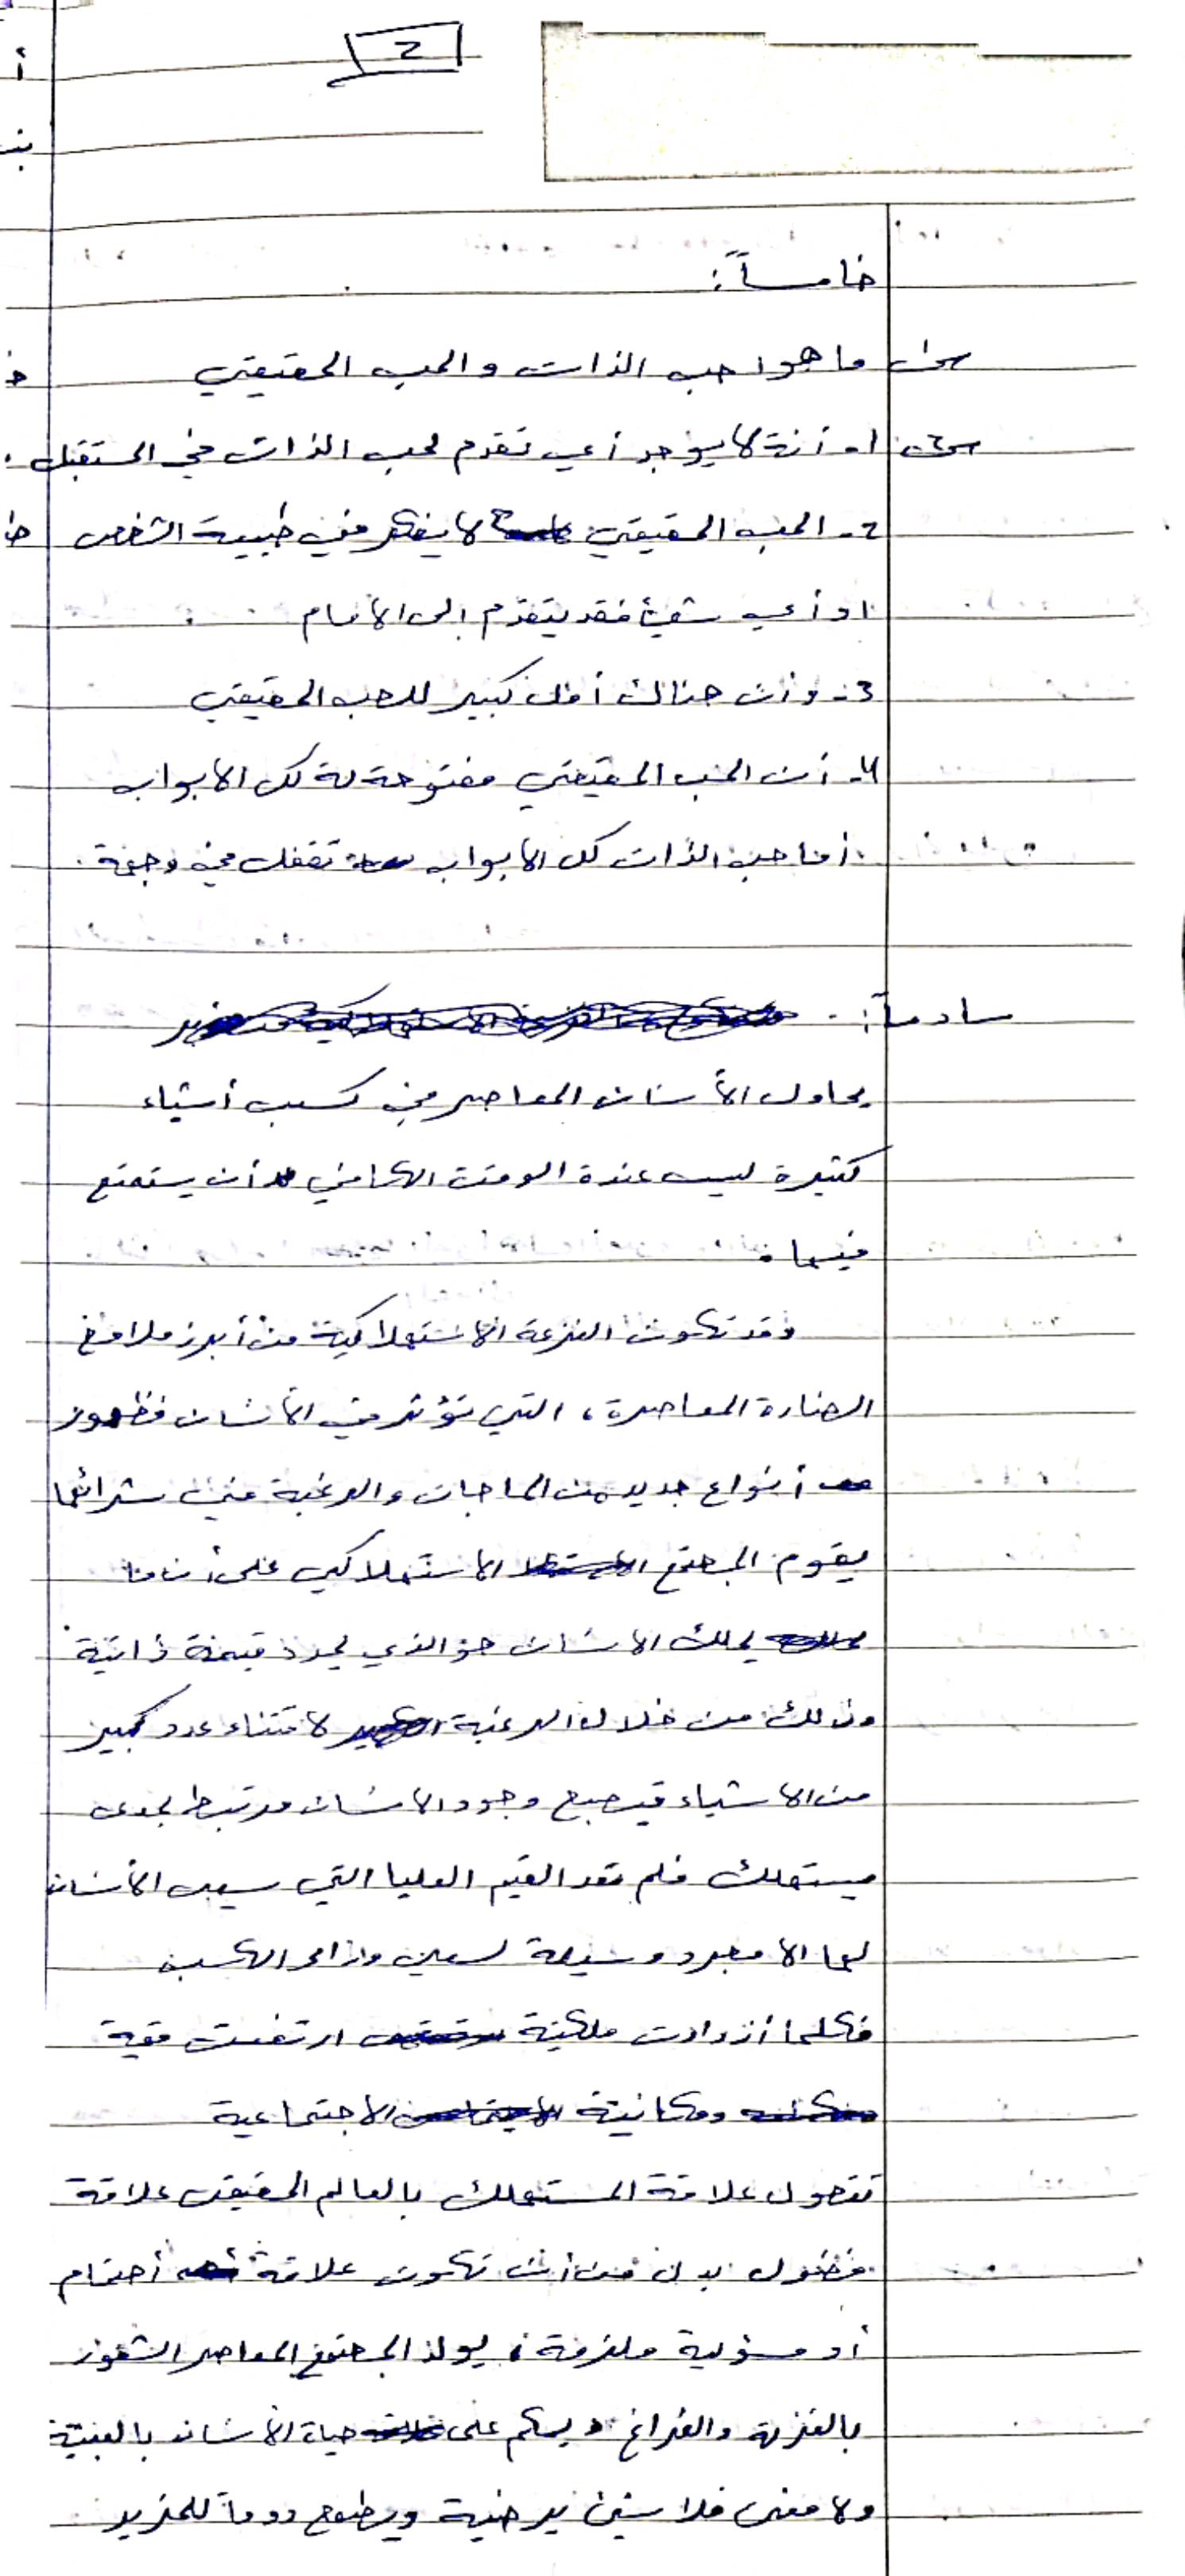 2
خامساً:
س١ ما هوا حب الذات والحب الحقيقي
س٢ ١- أنة لا يوجد أي تقدم لحب الذات في المستقبل.
2- الحب الحقيقي لا يفكر في طبيعة الشخص
او أي شيئ فقد يتقدم إلى الأمام
3- وأن هنالك أمل كبير للحب الحقيقي
4- أن الحب الحقيقي مفتوحة لة كل الابواب
أما حب الذات كل الابواب تقفل في وجهة.
سادساً:
يحاول الأنسان المعاصر في كسب أشياء
كثيرة ليس عندة الوقت الكافي أن يستمتع
فيها.
وقد تكون النزعة الاستهلاكية من أبرز ملامح
الحضارة المعاصرة، التي تؤثر في الأنسان فظهور
أنواع جديد من الحاجات والرغبة في شرائها
يقوم المجتمع الاستهلاكي على أن ما
يملك الانسان هو الذي يحدد قيمة ذاتية
وذلك من خلال الرغبة لاقتناء عدد كبير
من الاشياء فيصبح وجود الانسان مرتبط بمدى
يستهلك فلم تعد القيم العليا التي الأنسان
لها الا مجرد وسيلة الكسب
فكلما أزدادت ملكية ارتفعت قيمة
ومكانية الاجتماعية
تتحول علاقة المستهلك بالعالم الحقيقي علاقة
فضول بدل من أن تكون علاقة أهتمام
أو مسؤلية ملزمة، يولد المجتمع المعاصر الشعور
بالعزلة والفراغ ويحكم على حياة الأنسان بالعبثية
ولا معنى فلا شيئ يرضية ويطمح دوماً للمزيد